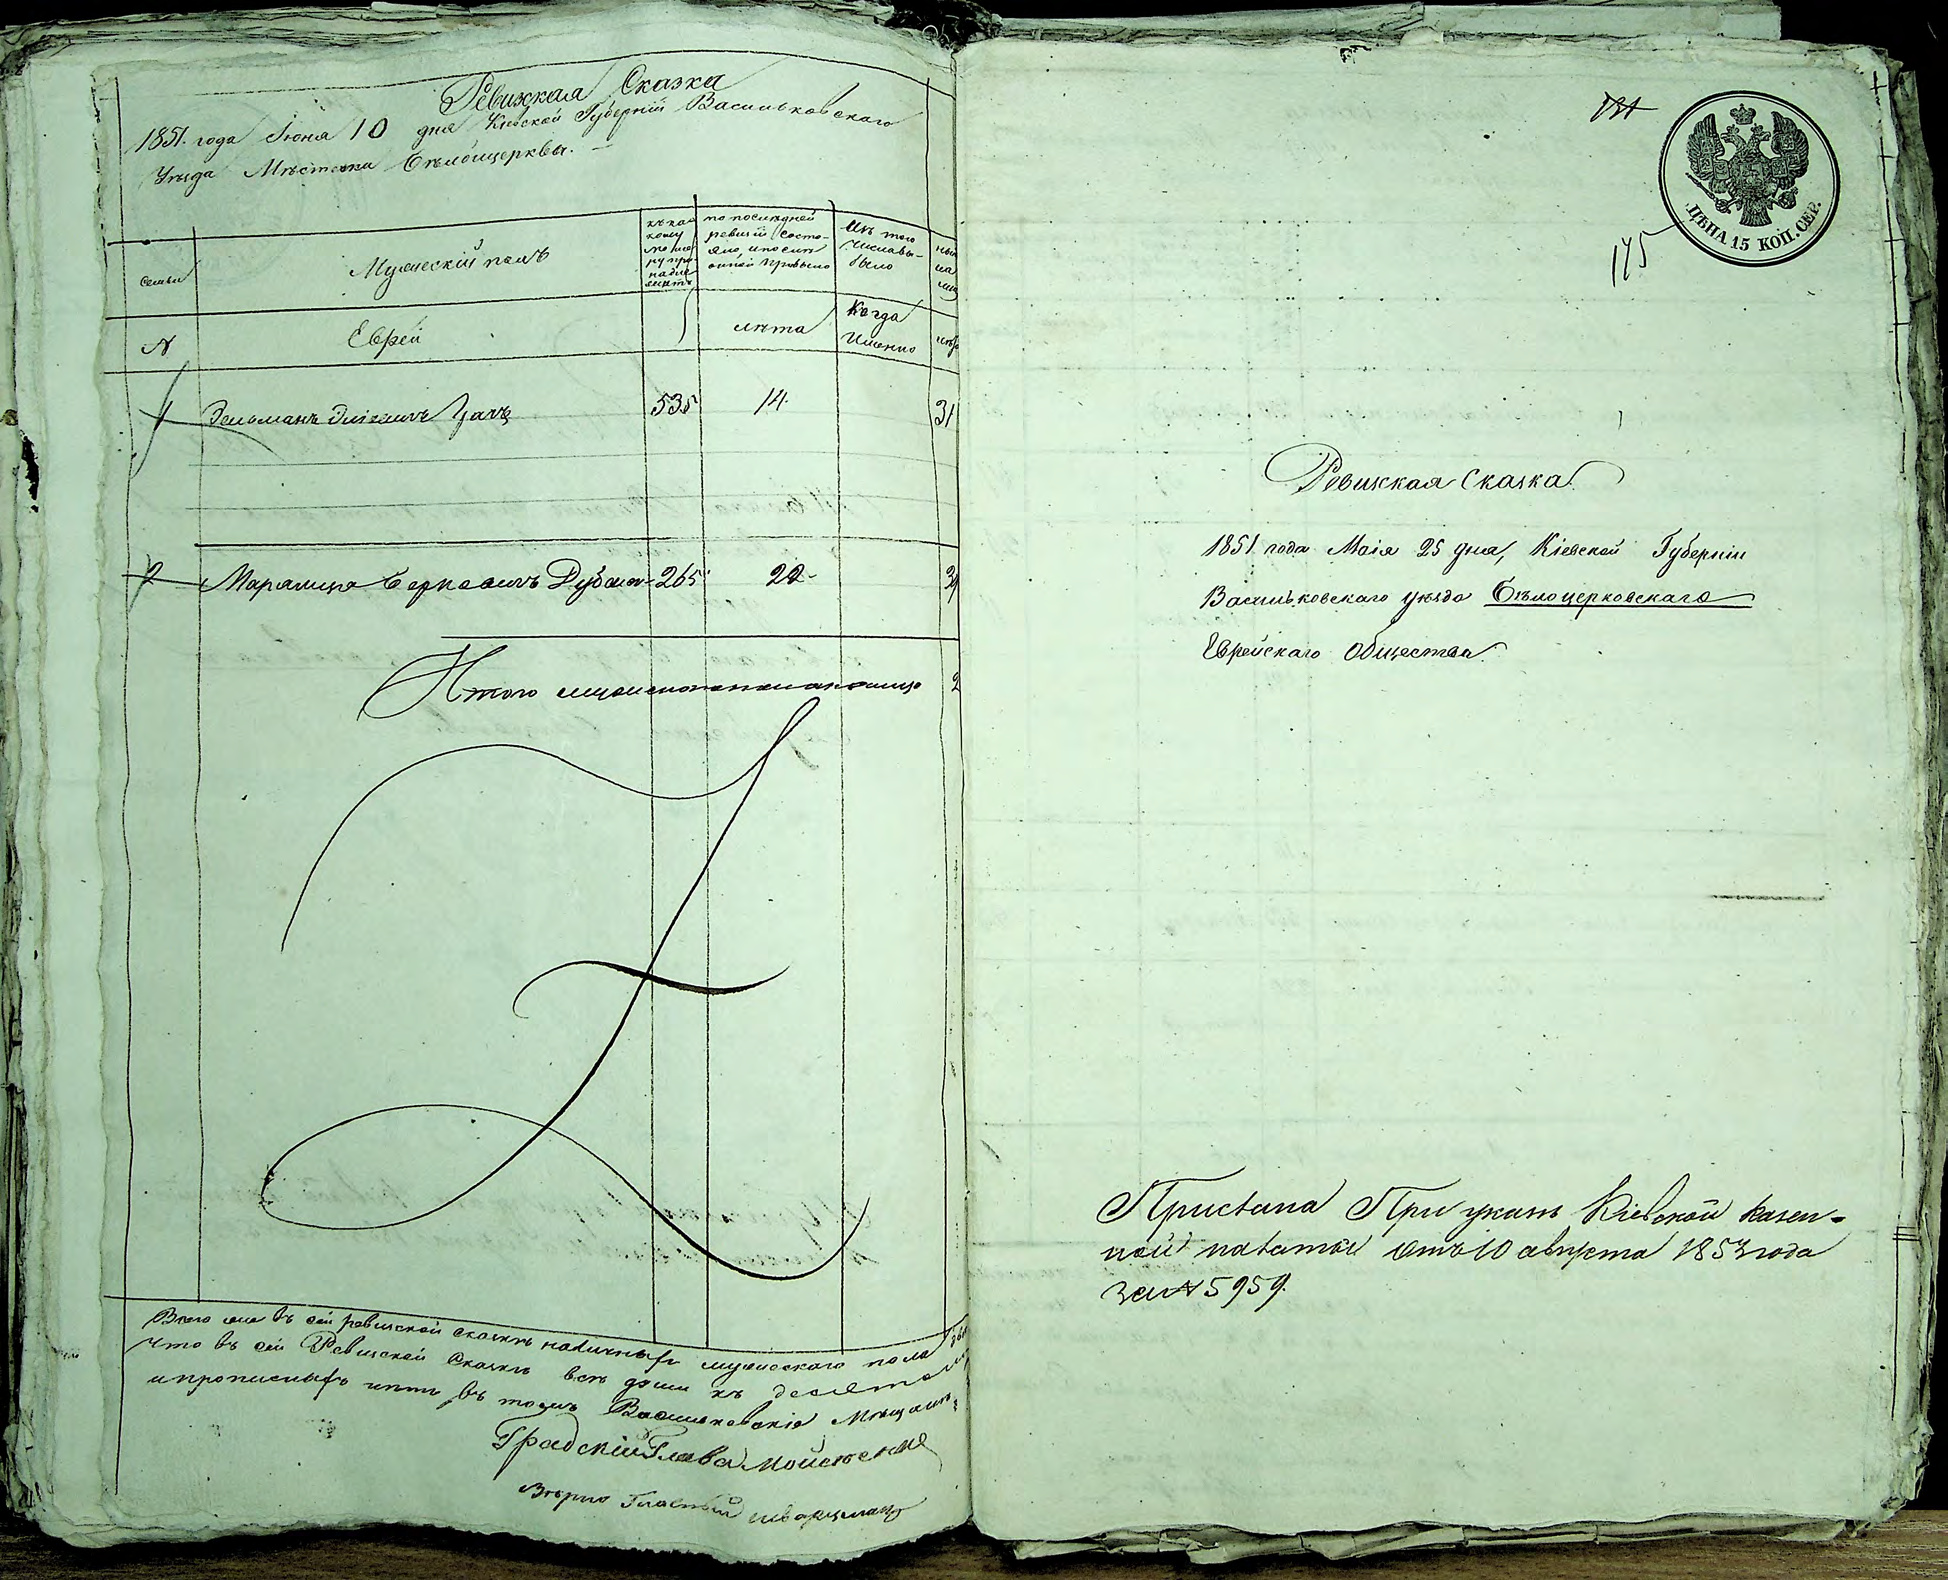 Ревизкая Сказка
1851 года Июня 10 дня Киевской Губерніи Васильковскаго
Уѣзда Мѣстечка Бѣлойцерквы.
Семьи
Мужескій полъ
къ ка
кому
по но
ру при
надле
житъ
по послѣдней
ревизіи состо-
яло, и послѣ
оной прибыло
Изъ того
числа вы-
было
№
Еврей
лѣта
Когда
Именно
1
Зельманъ 535 14. 31
2 Маралица Берковичъ 265 22
Итого мужескаго пола на лицо 2
Всего въ сей ревизской сказкѣ наличныхъ мужескаго пола
что въ сей Ревизской Сказкѣ всѣ души къ десятой
и прописныхъ нѣтъ въ томъ Васильковскіе Мѣщане
Градскій Глава
Вѣрно Гласный
131
175
ЦѢНА 15 КОП. СЕР.
Ревизкая Сказка
1851 года Маія 25 дня, Кіевской Губерніи
Васильковскаго уѣзда Бѣлоцерковскаго
Еврейскаго Общества.
Прислана При указѣ Кіевской казен-
ной палаты отъ 10 августа 1853 года
за № 5959.